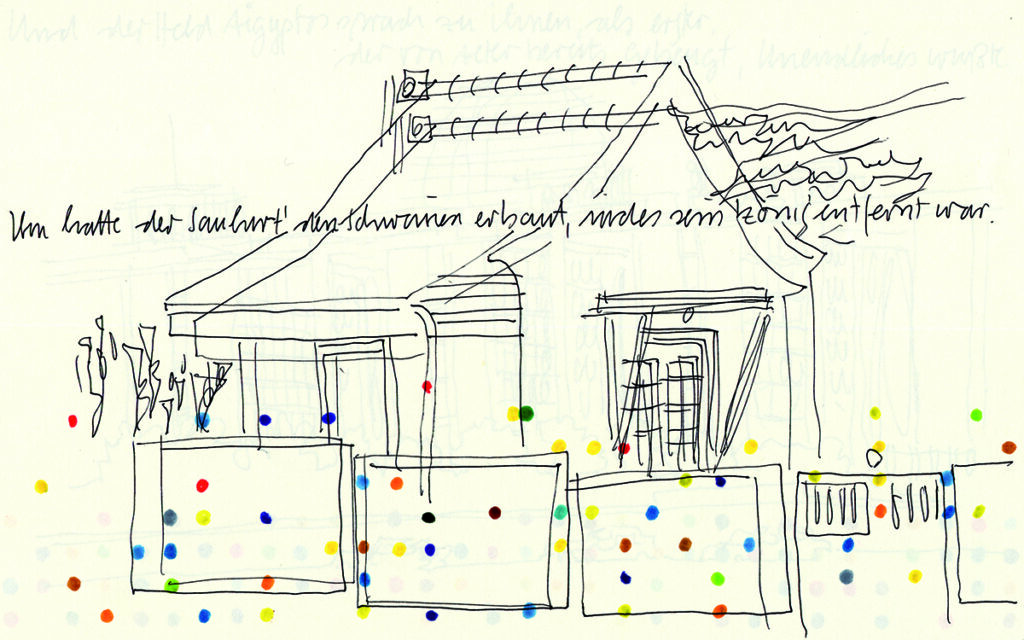 Und der Held Aigyptos sprach zu ihnen, als erster,
der von Alter bereits gebeugt, Unendliches wußte
Ihn hatte der Sauhirt den Schweinen erbaut, indes sein König entfernt war.